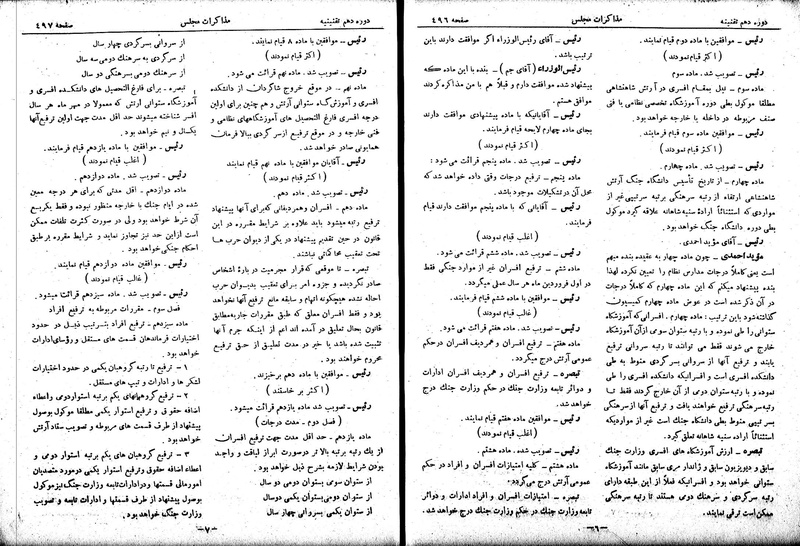 دوره دهم تقنینیه
مذاکرات مجلس
صفحه ٤٩٦
رئیس ـ موافقین با ماده دوم قیام نمایند.
(اکثر قیام نمودند)
رئیس ـ تصویب شد. ماده سوم
ماده سوم ـ نیل بمقام افسری در ارتش شاهنشاهی
مطلقا موکول بطی دوره آموزشگاه تخصصی نظامی یا فنی
صنف مربوطه در داخله یا خارجه خواهد بود.
رئیس ـ موافقین ماده سوم قیام فرمایند.
(اکثر قیام نمودند)
رئیس ـ تصویب شد. ماده چهارم.
ماده چهارم ـ از تاریخ تأسیس دانشگاه جنگ ارتش
شاهنشاهی ارتقاء از رتبه سرهنگی برتبه سرتیپی غیر از
مواردی که استثنائاً ارادۀ سنیه شاهانه علاقه گیرد موکول
بطی دوره دانشگاه جنگ خواهد بود.
رئیس ـ آقای مؤید احمدی.
مؤید احمدی ـ چون ماده چهار به عقیده بنده مبهم
است یعنی کاملا درجات مدارس نظام را تعیین نکرده لهذا
بنده پیشنهاد میکنم که این ماده چهارم که کاملا درجات
در آن ذکر شده است در عوض ماده چهارم کمیسیون
گذاشته شود باین ترتیب: ماده چهارم. افسرانی که آموزشگاه
ستوانی را طی نموده و با رتبه ستوان سومی از آن آموزشگاه
خارج می شوند فقط می توانند تا رتبه سروانی ترفیع
یابند و ترفیع آنها از سروانی بسرگردی منوط به طی
دانشکده افسری است و افسرانیکه دانشکده افسری را طی
نموده و با رتبه ستوان دومی از آن خارج گردند فقط تا
رتبه سرهنگی ترفیع خواهند یافت و ترفیع آنها از سرهنگی
بسرتیپی منوط بطی دانشگاه جنگ است غیر از مواردیکه
استثنائاً اراده سنیه شاهانه تعلق گیرد.
تبصره ـ ارزش آموزشگاه های افسری وزارت جنگ
سابق و دیویزیون سابق و ژاندارمری سابق مانند آموزشگاه
ستوانی خواهد بود و افسرانیکه فعلا از این طبقه دارای
رتبه سرگردی و سرهنگ دومی هستند تا رتبه سرهنگی
ممکن است ترقی نمایند.
رئیس ـ آقای رئیس الوزراء اکر موافقت دارند باین
ترتیب باشد.
رئیس الوزراء (آقای جم) ـ بنده با این ماده که
پیشنهاد شده موافقت دارم و قبلا هم با من مذاکره کردند
موافق هستم.
رئیس ـ آقایانیکه با ماده پیشنهادی موافقت دارند
بجای ماده چهارم لایحه قیام فرمایند.
(اکثر قیام نمودند)
رئیس ـ تصویب شد. ماده پنجم قرائت می شود:
ماده پنجم ـ ترفیع درجات وقتی داده خواهد شد که
محل آن در تشکیلات موجود باشد.
رئیس ـ آقایانی که با ماده پنجم موافقت دارند قیام
فرمایند.
(اکثر قیام نمودند)
رئیس ـ تصویب شد. ماده ششم قرائت می شود.
ماده ششم ـ ترفیع افسران غیر از موارد جنگی فقط
در اول فروردین ماه هر سال عملی میگردد.
رئیس ـ موافقین با ماده ششم قیام فرمایند.
(غالب قیام نمودند)
رئیس ـ تصویب شد. ماده هفتم قرائت می شود.
ماده هفتم ـ ترفیع افسران و همردیف افسران در حکم
عمومی ارتش درج میگردد.
تبصره ـ ترفیع افسران و همردیف افسران ادارات
و دوائر تابعه وزارت جنگ در حکم وزارت جنگ درج
خواهد شد.
رئیس ـ موافقین ماده هفتم قیام نمایند.
(اکثر قیام نمودند)
رئیس ـ تصویب شد. ماده هشتم.
ماده هشتم ـ کلیه امتیازات افسران و افراد در حکم
عمومی ارتش درج می گردد.
تبصره ـ امتیازات افسران و افراد ادارات و دوائر
تابعه وزارت جنگ در حکم وزارت جنگ درج خواهد شد.
ـ٦ـ
دوره دهم تقنینیه
مذاکرات مجلس
صفحه ٤٩٧
رئیس ـ موافقین با ماده ٨ قیام نمایند.
(اکثر قیام نمودند)
رئیس ـ تصویب شد. ماده نهم قرائت می شود.
ماده نهم ـ در موقع خروج شاگردان از دانشکده
افسری و آموزشگاه ستوانی ارتش و هم چنین برای اولین
درجه افسری فارغ التحصیل های آموزشگاههای نظامی و
فنی خارجه و در موقع ترفیع از سرگردی ببالا فرمان
همایونی صادر خواهد شد.
رئیس ـ آقایان موافقین با ماده نهم قیام نمایند.
(اکثر قیام نمودند)
رئیس ـ تصویب شد. ماده دهم.
ماده دهم ـ افسران و همردیفانی که برای آنها پیشنهاد
ترفیع رتبه میشود باید علاوه بر شرایط مقرره در این
قانون در حین تقدیم پیشنهاد در یکی از دیوان حرب ها
تحت تعقیب محاکماتی نباشند.
تبصره ـ تا موقعی که قرار مجرمیت در بارۀ اشخاص
صادر نگردیده و جزوه امر برای تعقیب بدیوان حرب
احاله نشده هیچگونه اتهام و سابقه مانع ترفیع آنها نخواهد
بود و فقط افسران معلق که طبق مقررات جاریه مطابق
قانون بحال تعلیق در آمده اند اعم از اینکه جرم آنها
تثبیت شده باشد یا خیر در مدت تعلیق از حق ترفیع
محروم خواهند بود.
رئیس ـ موافقین با ماده دهم برخیزند.
(اکثر بر خاستند)
رئیس ـ تصویب شد. ماده یازدهم قرائت میشود.
(فصل دوم ـ مدت درجات)
ماده یازدهم ـ حد اقل مدت جهت ترفیع افسران
از یک رتبه برتبه بالاتر در صورت ابراز لیاقت و واجد
بودن شرایط لازمه بشرح ذیل خواهد بود.
از ستوان سومی بستوان دومی دو سال
از ستوان دومی بستوان یکمی دوسال
از ستوان یکمی بسروانی چهار سال
از سروانی بسرگردی چهار سال
از سرگردی به سرهنگ دومی سه سال
از سرهنگ دومی بسرهنگی دو سال
تبصره ـ برای فارغ التحصیل های دانشکده افسری و
آموزشگاه ستوانی ارتش که معمولا در مهر ماه هر سال
افسر شناخته میشوند حد اقل مدت جهت اولین ترفیع آنها
یکسال و نیم خواهد بود.
رئیس ـ موافقین با ماده یازدهم قیام فرمایند.
(اغلب قیام نمودند)
رئیس ـ تصویب شد. ماده دوازدهم.
ماده دوازدهم ـ اقل مدتی که برای هر درجه معین
شده در ایام جنگ با خارجه منظور نبوده و فقط بکربع
آن شرط خواهد بود ولی در صورت کثرت تلفات ممکن
است از این حد نیز تجاوز نماید و شرایط مقرره بر طبق
احکام جنگی خواهد بود.
رئیس ـ موافقین ماده دوازدهم قیام نمایند.
(غالب قیام نمودند)
رئیس ـ تصویب شد. ماده سیزدهم قرائت میشود.
فصل سوم ـ مقررات مربوطه به ترفیع افراد
ماده سیزدهم ـ ترفیع افراد بترتیب ذیل در حدود
اختیارات فرماندهان قسمت های مستقل و رؤسای ادارات
خواهد بود.
١ ـ ترفیع تا رتبه گروهبان یکمی در حدود اختیارات
لشکر ها و ادارات و تیپ های مستقل.
٢ ـ ترفیع گروهبانهای یکم برتبه استوار دومی و اعطاء
اضافه حقوق و ترفیع استوار یکمی مطلقا موکول بوصول
پیشنهاد از طرف قسمت های مربوطه و تصویب ستاد آرتش
خواهد بود.
٣ ـ ترفیع گروهبان های یکم برتبه استوار دومی و
اعطاء اضافه حقوق و ترفیع استوار یکمی در مورد متصدیان
امور مالی قسمتها و ادارات تابعه وزارت جنگ نیز موکول
بوصول پیشنهاد از طرف قسمتها و ادارات تابعه و تصویب
وزارت جنگ خواهد بود.
ـ٧ـ